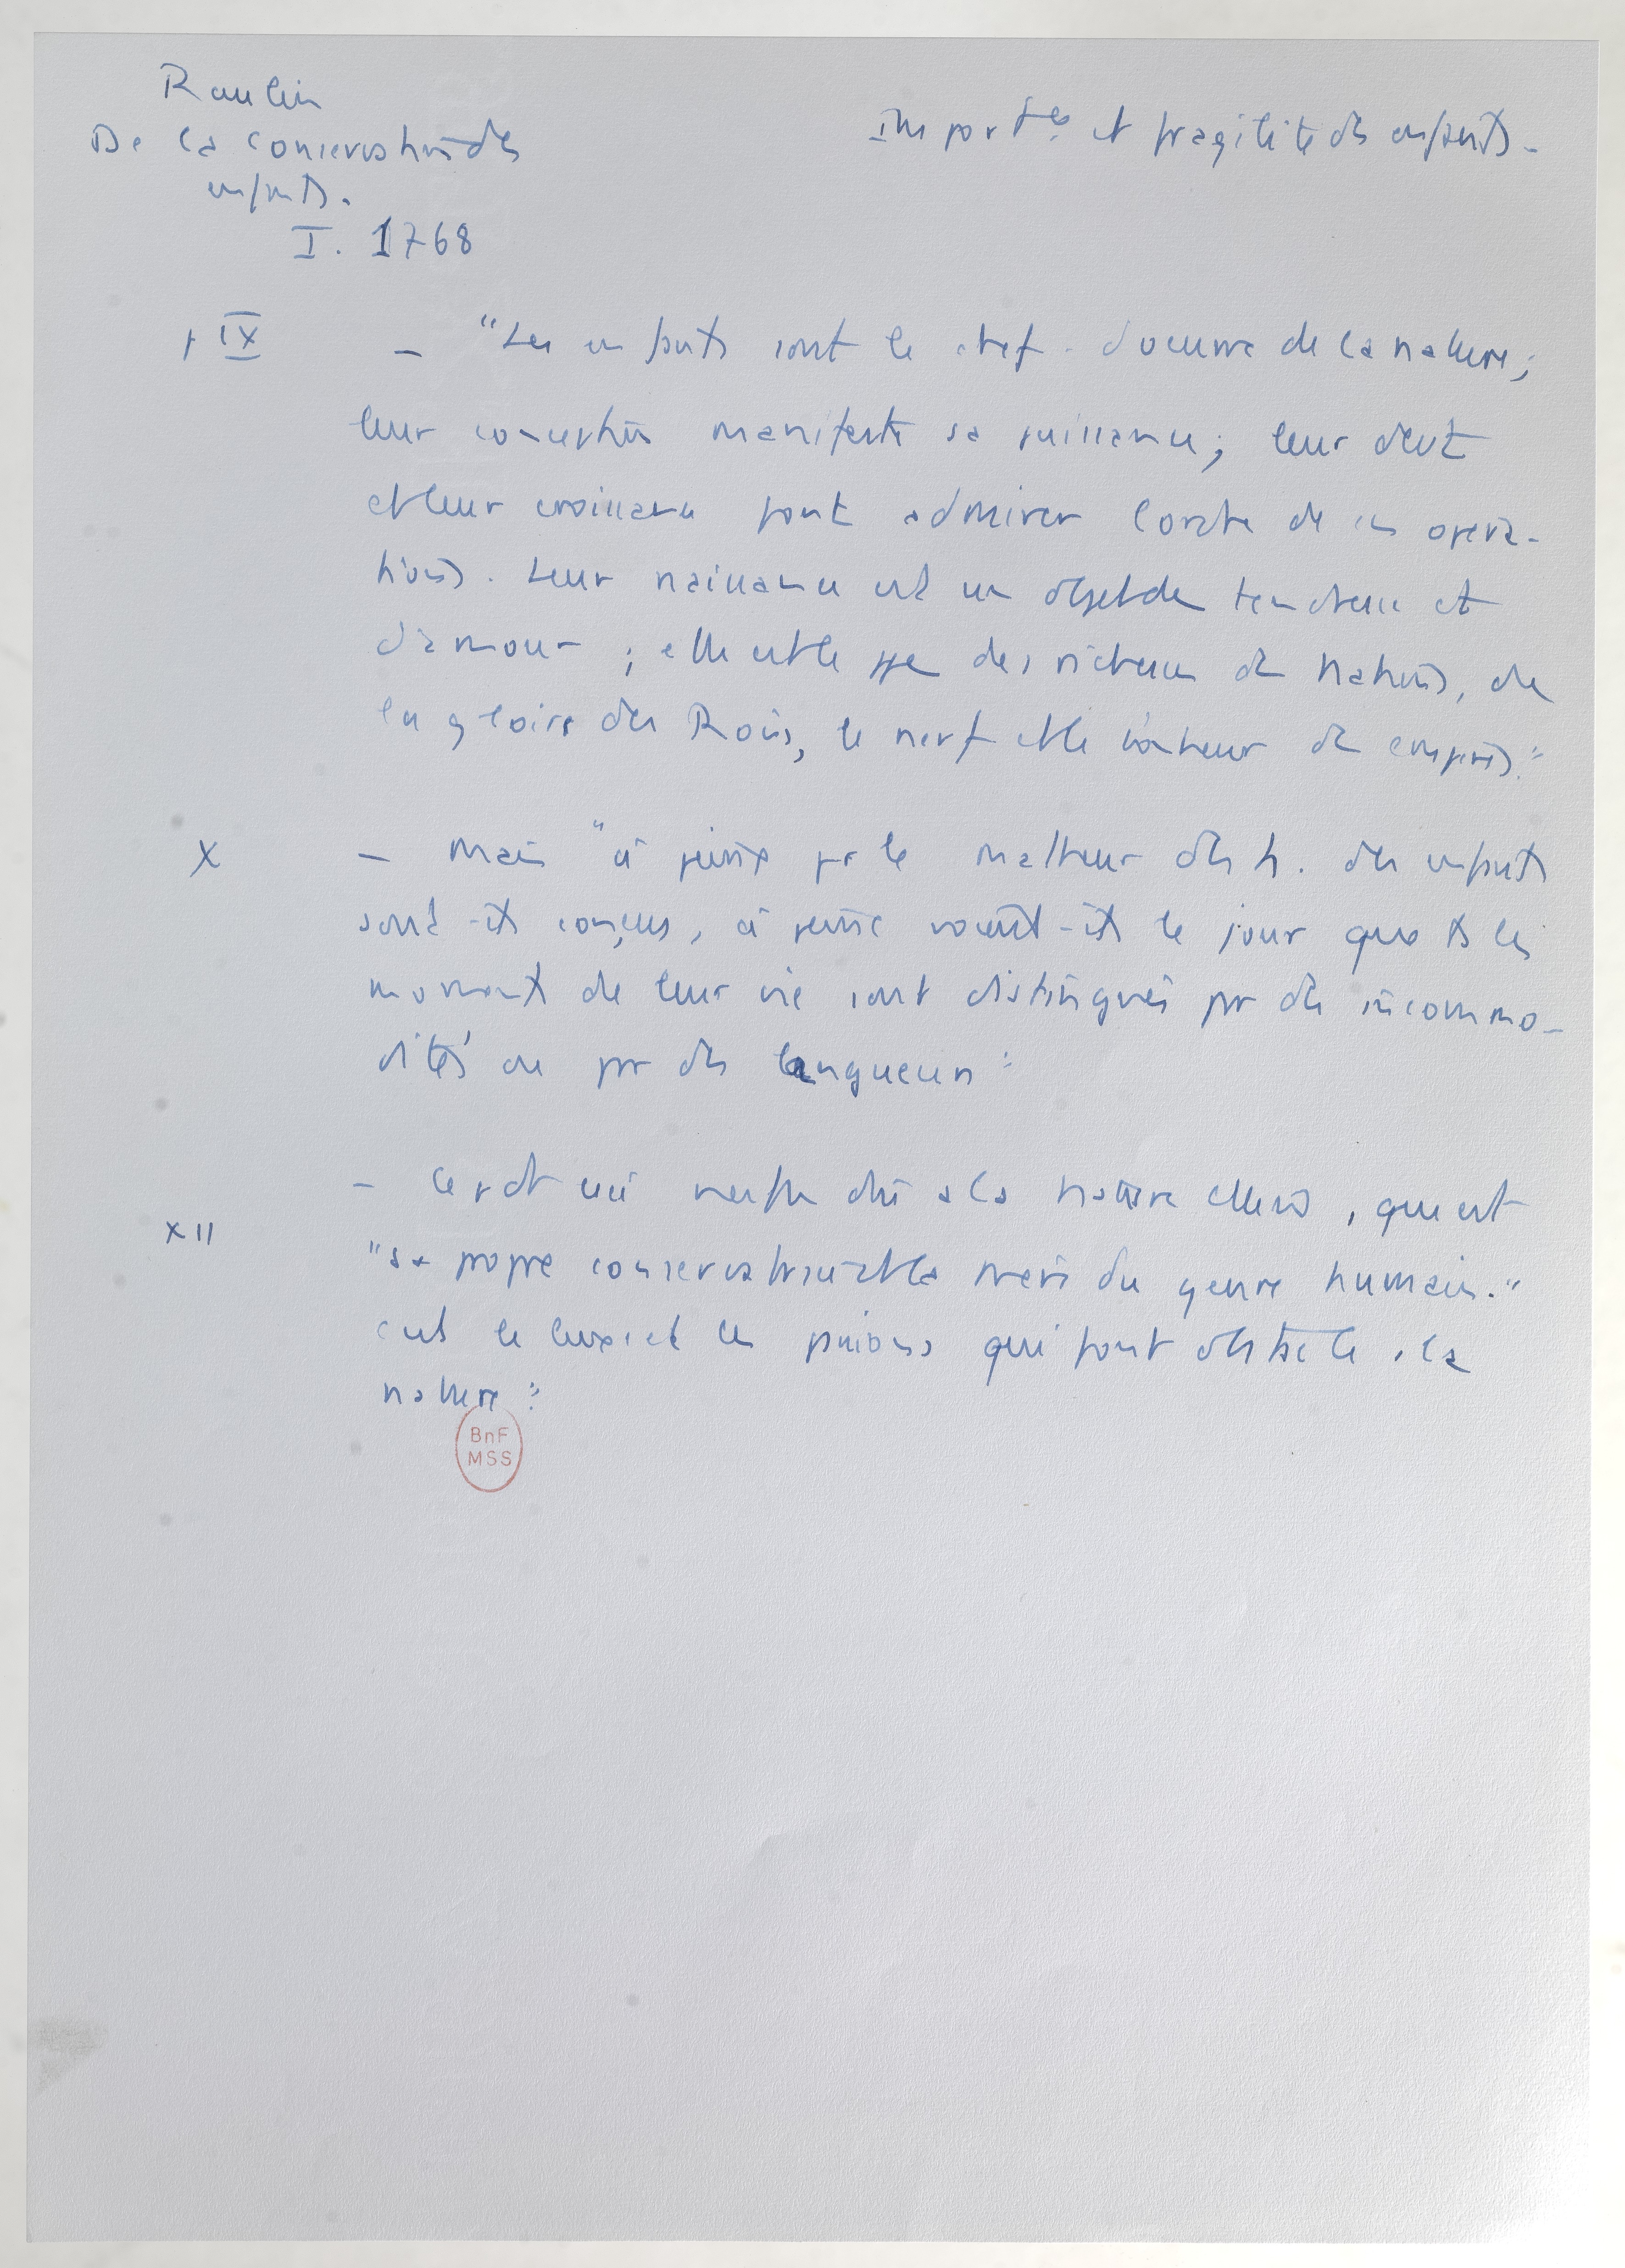 Raulin
De la conservation des
enfants.
I. 1768
Import^ce et fragilité des enfants.
p IX
– "Les enfants sont le chef-d'oeuvre de la nature;
leur conception manifeste sa puissance; leur devt
et leur croissance font admirer l'ordre de ses opéra-
tions. Leur naissance est un objet de tendresse et
d'amour; elle est le des richesses des Nations, de
la gloire des Rois, le nerf et le des empires."
X
– Mais "à peine pr le malheur des h. des enfants
sont-ils conçus, à peine voient-ils le jour que ts les
moments de leur vie sont distingués par des incommo-
dités ou par des langueurs"
– Ce dt à la nature elle m̂, qui est
XII
"sa propre conservatrice et la mère du genre humain."
c'est le luxe et les passions qui font obstacle à la
nature"
BnF
MSS